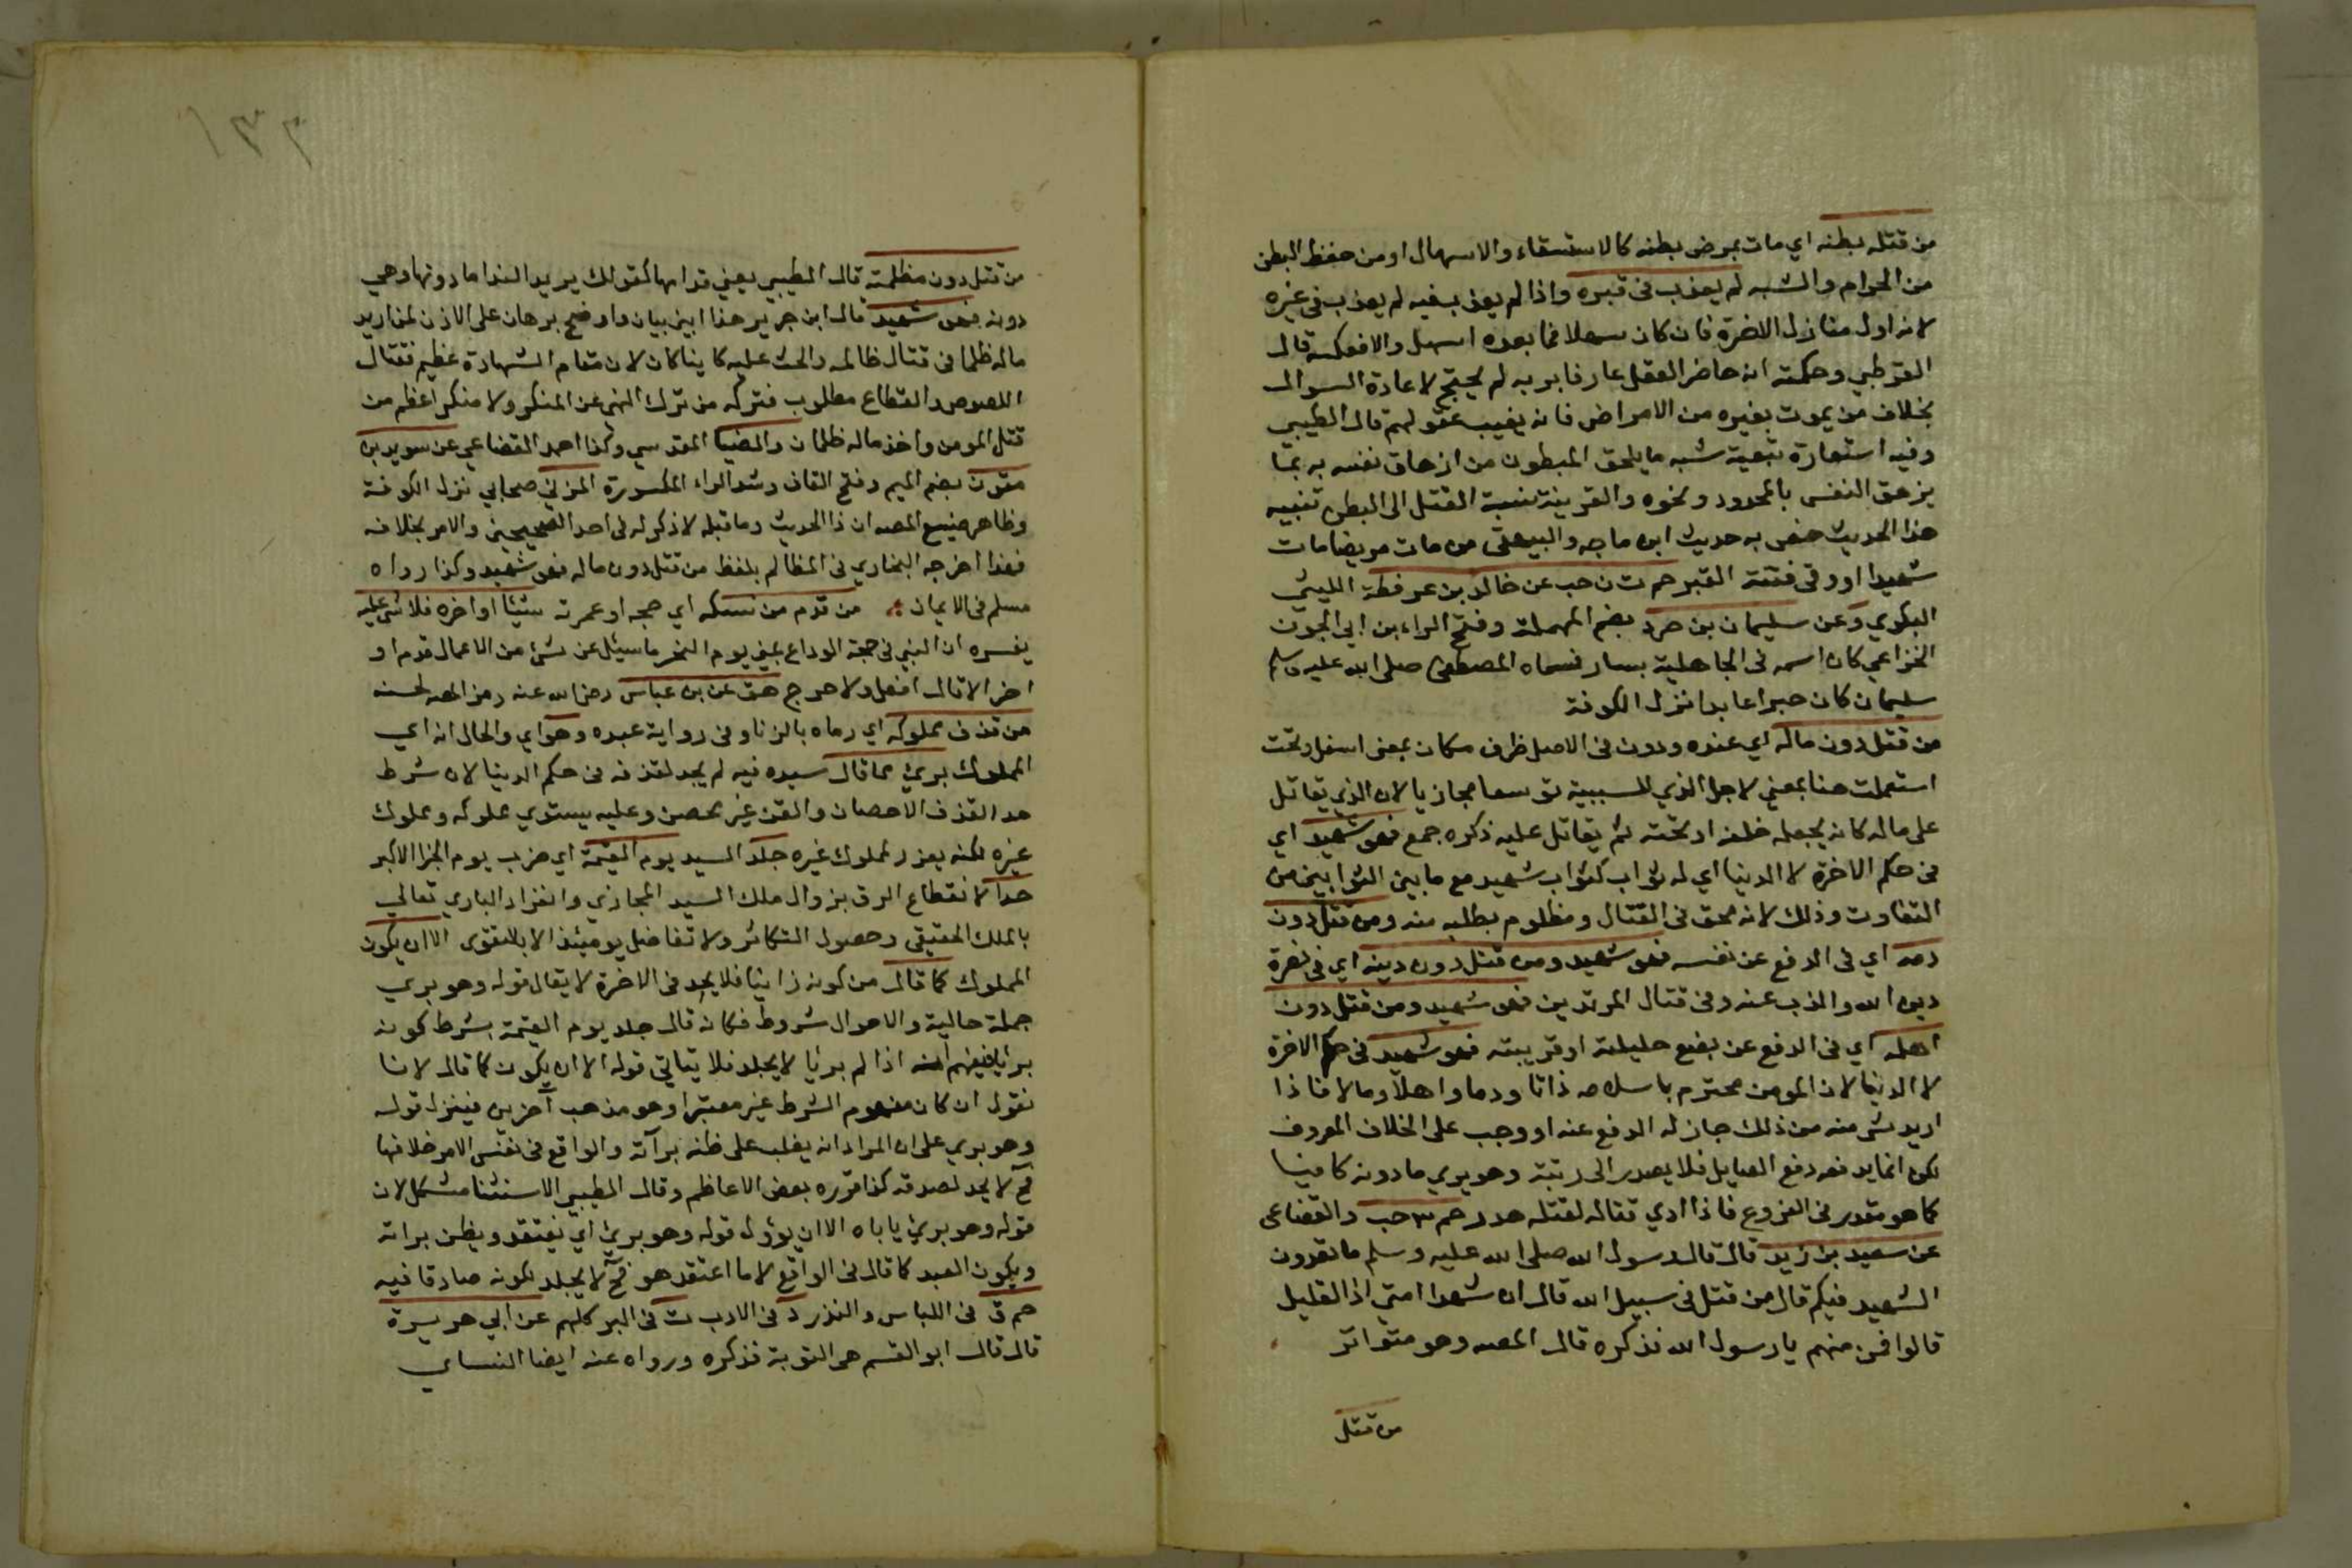 من قتله بطنه اي مات بمرض بطنه كالاستسقاء والاسهال او من حفظ البطن
من الحرام والشبه لم يعذب في قبره واذا لم يعذب فيه لم يعذب في غيره
لانه اول منازل الاخرة فان كان سهلا فما بعده اسهل والا فعكسه قال
القرطبي وحكمته انه حاضر العقل عارفا بربه لم يحتج لاعادة السوال
بخلاف من يموت بغيره من الامراض فانه يغيب عقولهم قال الطيبي
وفيه استعارة تبعية شبه ما يلحق المبطون من ازهاق نفسه به بما
يزهق النفس بالمحدود ونحوه والقرينة نسبة القتل الى البطن تنبيه
هذا الحديث خص به حديث ابن ماجه والبيهقي من مات مريضا مات
شهيدا او وقي فتنة القبر حم ت ن حب عن خالد بن عرفطة الليثي
البكوي وعن سليمان بن صرد بضم المهملة وفتح الراء بن ابي الجون
الخزاعي كان اسمه في الجاهلية يسار فسماه المصطفى صلى الله عليه وسلم
سليمان كان خيرا عابدا نزل الكوفة
من قتل دون ماله اي عنده ودون في الاصل ظرف مكان بمعنى اسفل وتحت
استعملت هنا بمعني لاجل الذي للسببية توسعا مجازيا لان الذي يقاتل
على ماله كانه يجعله خلفه او تحته ثم يقاتل عليه ذكره جمع فهو شهيد اي
في حكم الاخرة لا الدنيا اي له ثواب كثواب شهيد مع ما بين الثوابين من
التفاوت وذلك لانه محق في القتال ومظلوم بطلبه منه ومن قتل دون
دمه اي في الدفع عن نفسه فهو شهيد ومن قتل دون دينه اي في نصرة
دين الله والذب عنه وفي قتال المرتدين فهو شهيد ومن قتل دون
اهله اي في الدفع عن بضع حليلته او قريبته فهو شهيد في حكم الاخرة
لا الدنيا لان المومن محترم باسلامه ذاتا ودما واهلا ومالا فاذا
اريد شي منه من ذلك جاز له الدفع عنه او وجب على الخلاف المعروف
لكن انما يدفعه دفع الصايل فلا يصعد الى رتبة وهو يري ما دونه كافيا
كما هو مقدر في الفروع فاذا ادي قتاله لقتله هدر حم ٣ حب والقضاعي
عن سعيد بن زيد قال قال رسول الله صلى الله عليه وسلم ما تعدون
الشهيد فيكم قال من قتل في سبيل الله قال ان شهدا امتي اذا لقليل
قالوا فمن منهم يا رسول الله فذكره قال المصه وهو متواتر
من قتل
١٣٣
من قتل دون مظلمته قال الطيبي يعني قدامها كقولك يريد الندا ما دونها وهي
دونه فهو شهيد قال ابن جرير هذا ابين بيان واوضح برهان على الاذن لمن اريد
ماله ظلما في قتال ظالمه والحث عليه كاينا كان لان مقام الشهادة عظيم فقتال
اللصوص والقطاع مطلوب فتركه من ترك النهي عن المنكر ولا منكر اعظم من
قتل المومن واخذ ماله ظلما ن والضيا المقدسي وكذا احمد القضاعي عن سويد بن
مقرن بضم الميم وفتح القاف وشد الراء المكسورة المزني صحابي نزل الكوفة
وظاهر صنيع المصه ان ذا الحديث وما قبله لا ذكر له في احد الصحيحين والامر بخلافه
فهذا اخرجه البخاري في المظالم بلفظ من قتل دون ماله فهو شهيد وكذا رواه
مسلم في الايمان من قدم من نسكه اي حجه او عمرته شيئا او اخره فلا شي عليه
يفسره ان النبي في حجة الوداع يعني يوم النحر ما سئل عن شي من الاعمال قدم او
اخر الا قال افعل ولا حرج هق عن بن عباس رضي الله عنه رمز المصه لحسنه
من قذف مملوكه اي رماه بالزنا وفي رواية عبده وهو اي والحال انه اي
المملوك بري مما قال سيده فيه لم يحد لقذفه في حكم الدنيا لان شرط
حد القذف الاحصان والقن غير محصن وعليه يستوي مملوكه ومملوك
غيره لكنه يعزر لمملوك غيره جلد السيد يوم القيمة اي ضرب يوم الجزا الاكبر
حدا لانقطاع الرق بزوال ملك السيد المجازي وانفراد الباري تعالى
بالملك الحقيقي وحصول التكافر ولا تفاضل يوميئذ الا بالتقوى الا ان يكون
المملوك كما قال من كونه زانيا فلا يحد في الاخرة لا يقال قوله وهو بري
جملة حالية والاحوال شروط فكانه قال جلد يوم القيمة بشرط كونه
بريا فيفهم انه اذا لم بريا لا يجلد فلا يتاتي قوله الا ان يكون كما قال لانا
نقول ان كان مفهوم الشرط غير معتبرا وهو مذهب آخرين فينزل قوله
وهو بري على ان المراد انه يغلب على ظنه برآته والواقع في نفس الامر خلافها
فح لا يحد لصدقه كذا قرره بعض الاعاظم وقال الطيبي الاستثنا مشكل لان
قوله وهو بري ياباه الا ان يؤول قوله وهو بري اي يعتقد ويظن براته
ويكون العبد كما قال في الواقع لا ما اعتقد هو فح لا يجلد لكونه صادقا فيه
حم ق في اللباس والنذر د في الادب ت في البر كلهم عن ابي هريرة
قال قال ابو القسم هى التوبة فذكره ورواه عنه ايضا النساي